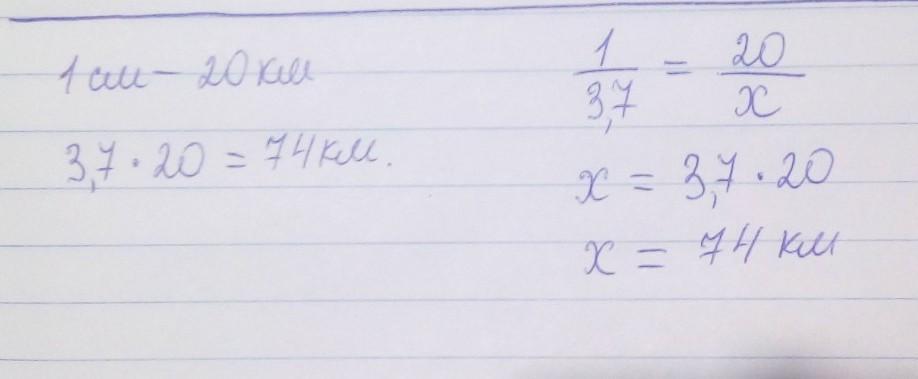 1 см – 20 км
3,7 · 20 = 74 км.
1/3,7 = 20/x
x = 3,7 · 20
x = 74 км